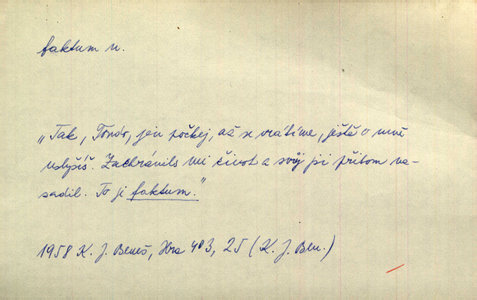 faktum n.
„Tak, Tondo, jen počkej, až se vrátíme, ještě o mně
uslyšíš. Zachránils mi život a svůj při přitom na-
sadil. To je faktum."
1958 K. J. Beneš, Hra 403, 25 (K. J. Ben.)